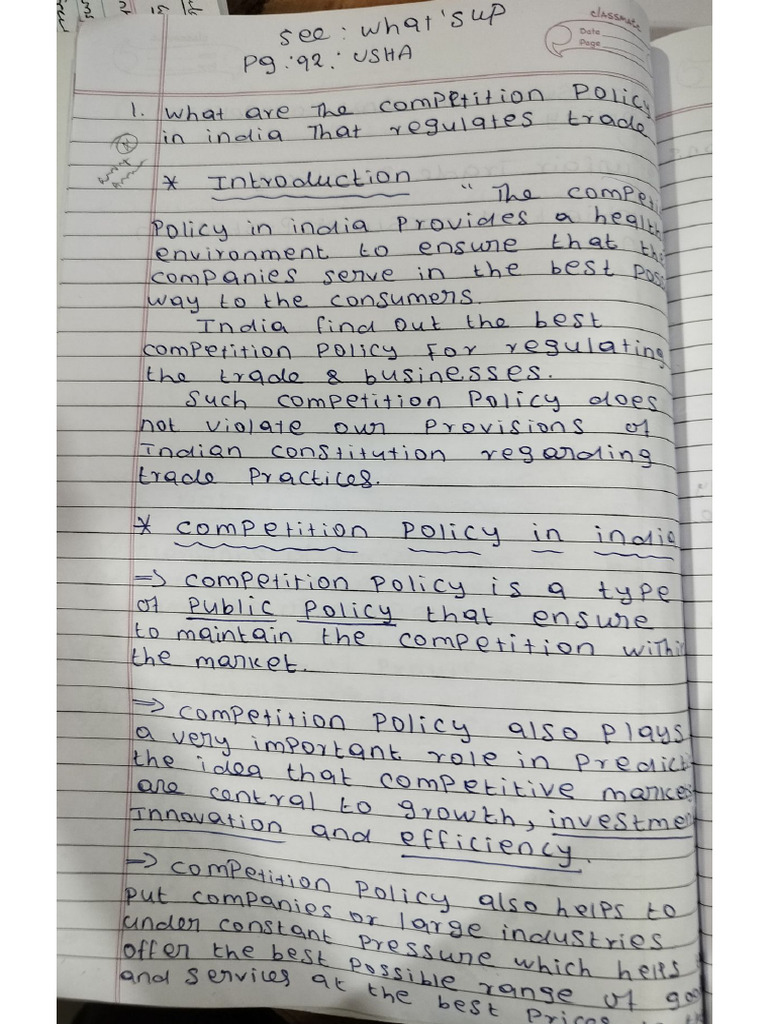 see: what's up
Pg: 92: USHA
classmate
Date
Page
1. what are the competition Policy
in india that regulates trade
* Introduction
"The compet
Policy in india Provides a health
environment to ensure that the
companies serve in the best Poss
way to the consumers.
India find out the best
competition Policy for regulating
the trade & businesses.
Such competition Policy does
not violate our Provisions of
Indian constitution regarding
trade Practices.
* competition Policy in india
=> competition Policy is a type
of Public Policy that ensure
to maintain the competition within
the market.
=> competition Policy also Plays
a very important role in Predict
the idea that competitive market
are central to growth, investmen
Innovation and efficiency.
=> competition Policy also helps to
put companies or large industries
under constant Pressure which helps
offer the best Possible range of goo
and services at the best Prices